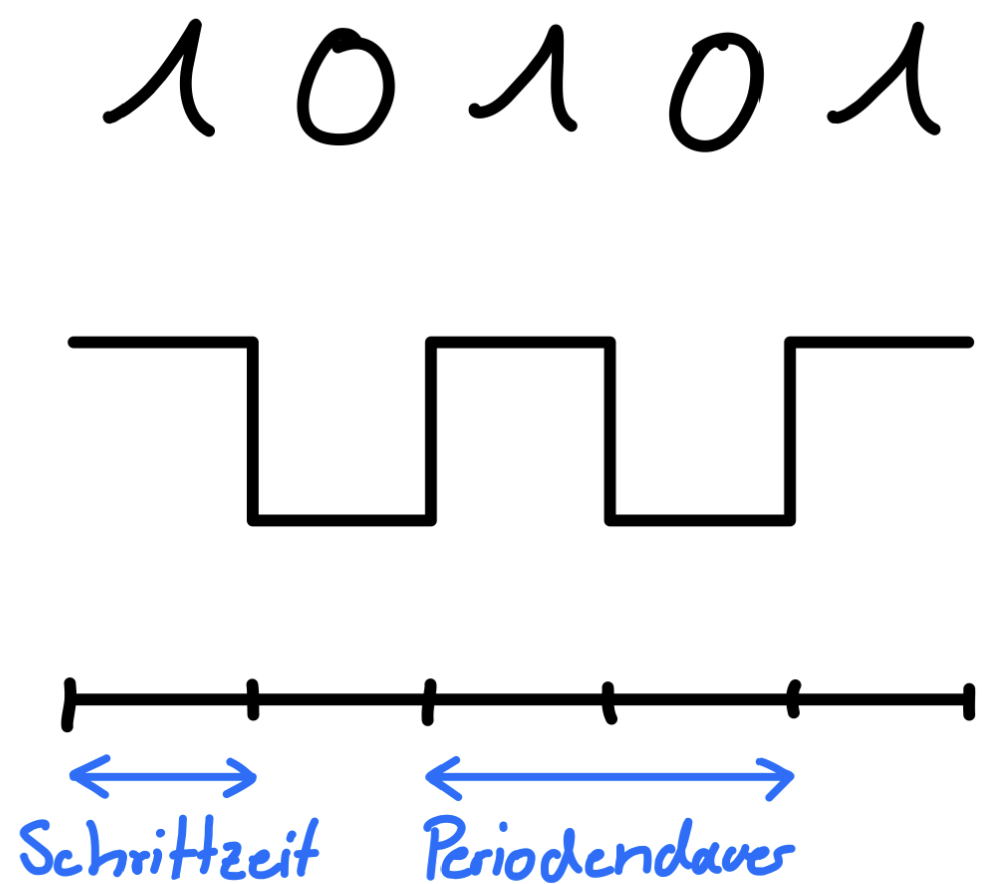 1 0 1 0 1
Schrittzeit Periodendauer